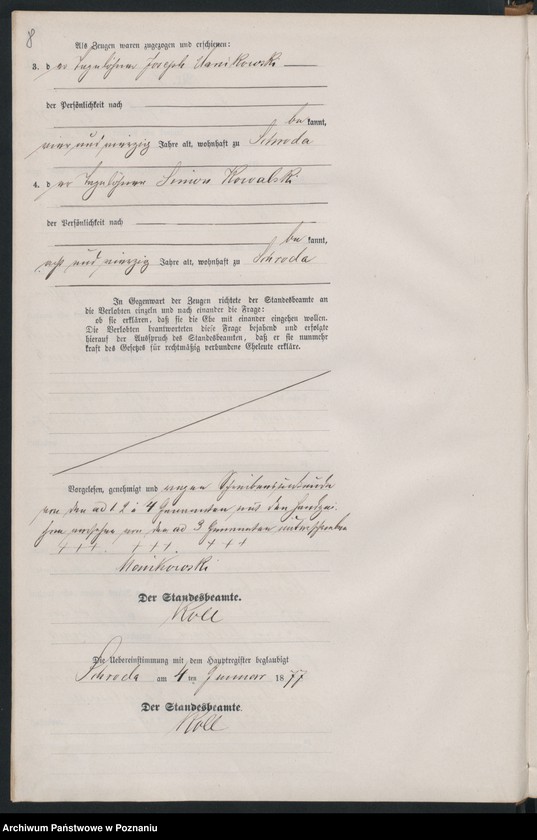 8
Als Zeugen waren zugezogen und erschienen:
3. der Tagelöhner Joseph
der Persönlichkeit nach
bekannt,
vier und vierzig Jahre alt, wohnhaft zu Schroda
4. der Tagelöhner Simon Kowalski
der Persönlichkeit nach
bekannt,
acht und vierzig Jahre alt, wohnhaft zu Schroda
In Gegenwart der Zeugen richtete der Standesbeamte an
die Verlobten einzeln und nach einander die Frage:
ob sie erklären, daß sie die Ehe mit einander eingehen wollen.
Die Verlobten beantworteten diese Frage bejahend und erfolgte
hierauf der Ausspruch des Standesbeamten, daß er sie nunmehr
kraft des Gesetzes für rechtmäßig verbundene Eheleute erkläre.
Vorgelesen, genehmigt und wegen Schreibensunkunde
von den ad 1 2 & 4 Genannten mit den Handzei-
chen versehen von dem ad 3 Genannten unterschrieben
+++. +++. +++
Der Standesbeamte.
Koll
Die Uebereinstimmung mit dem Hauptregister beglaubigt
Schroda am 4ten Januar 1877
Der Standesbeamte.
Koll
Archiwum Państwowe w Poznaniu